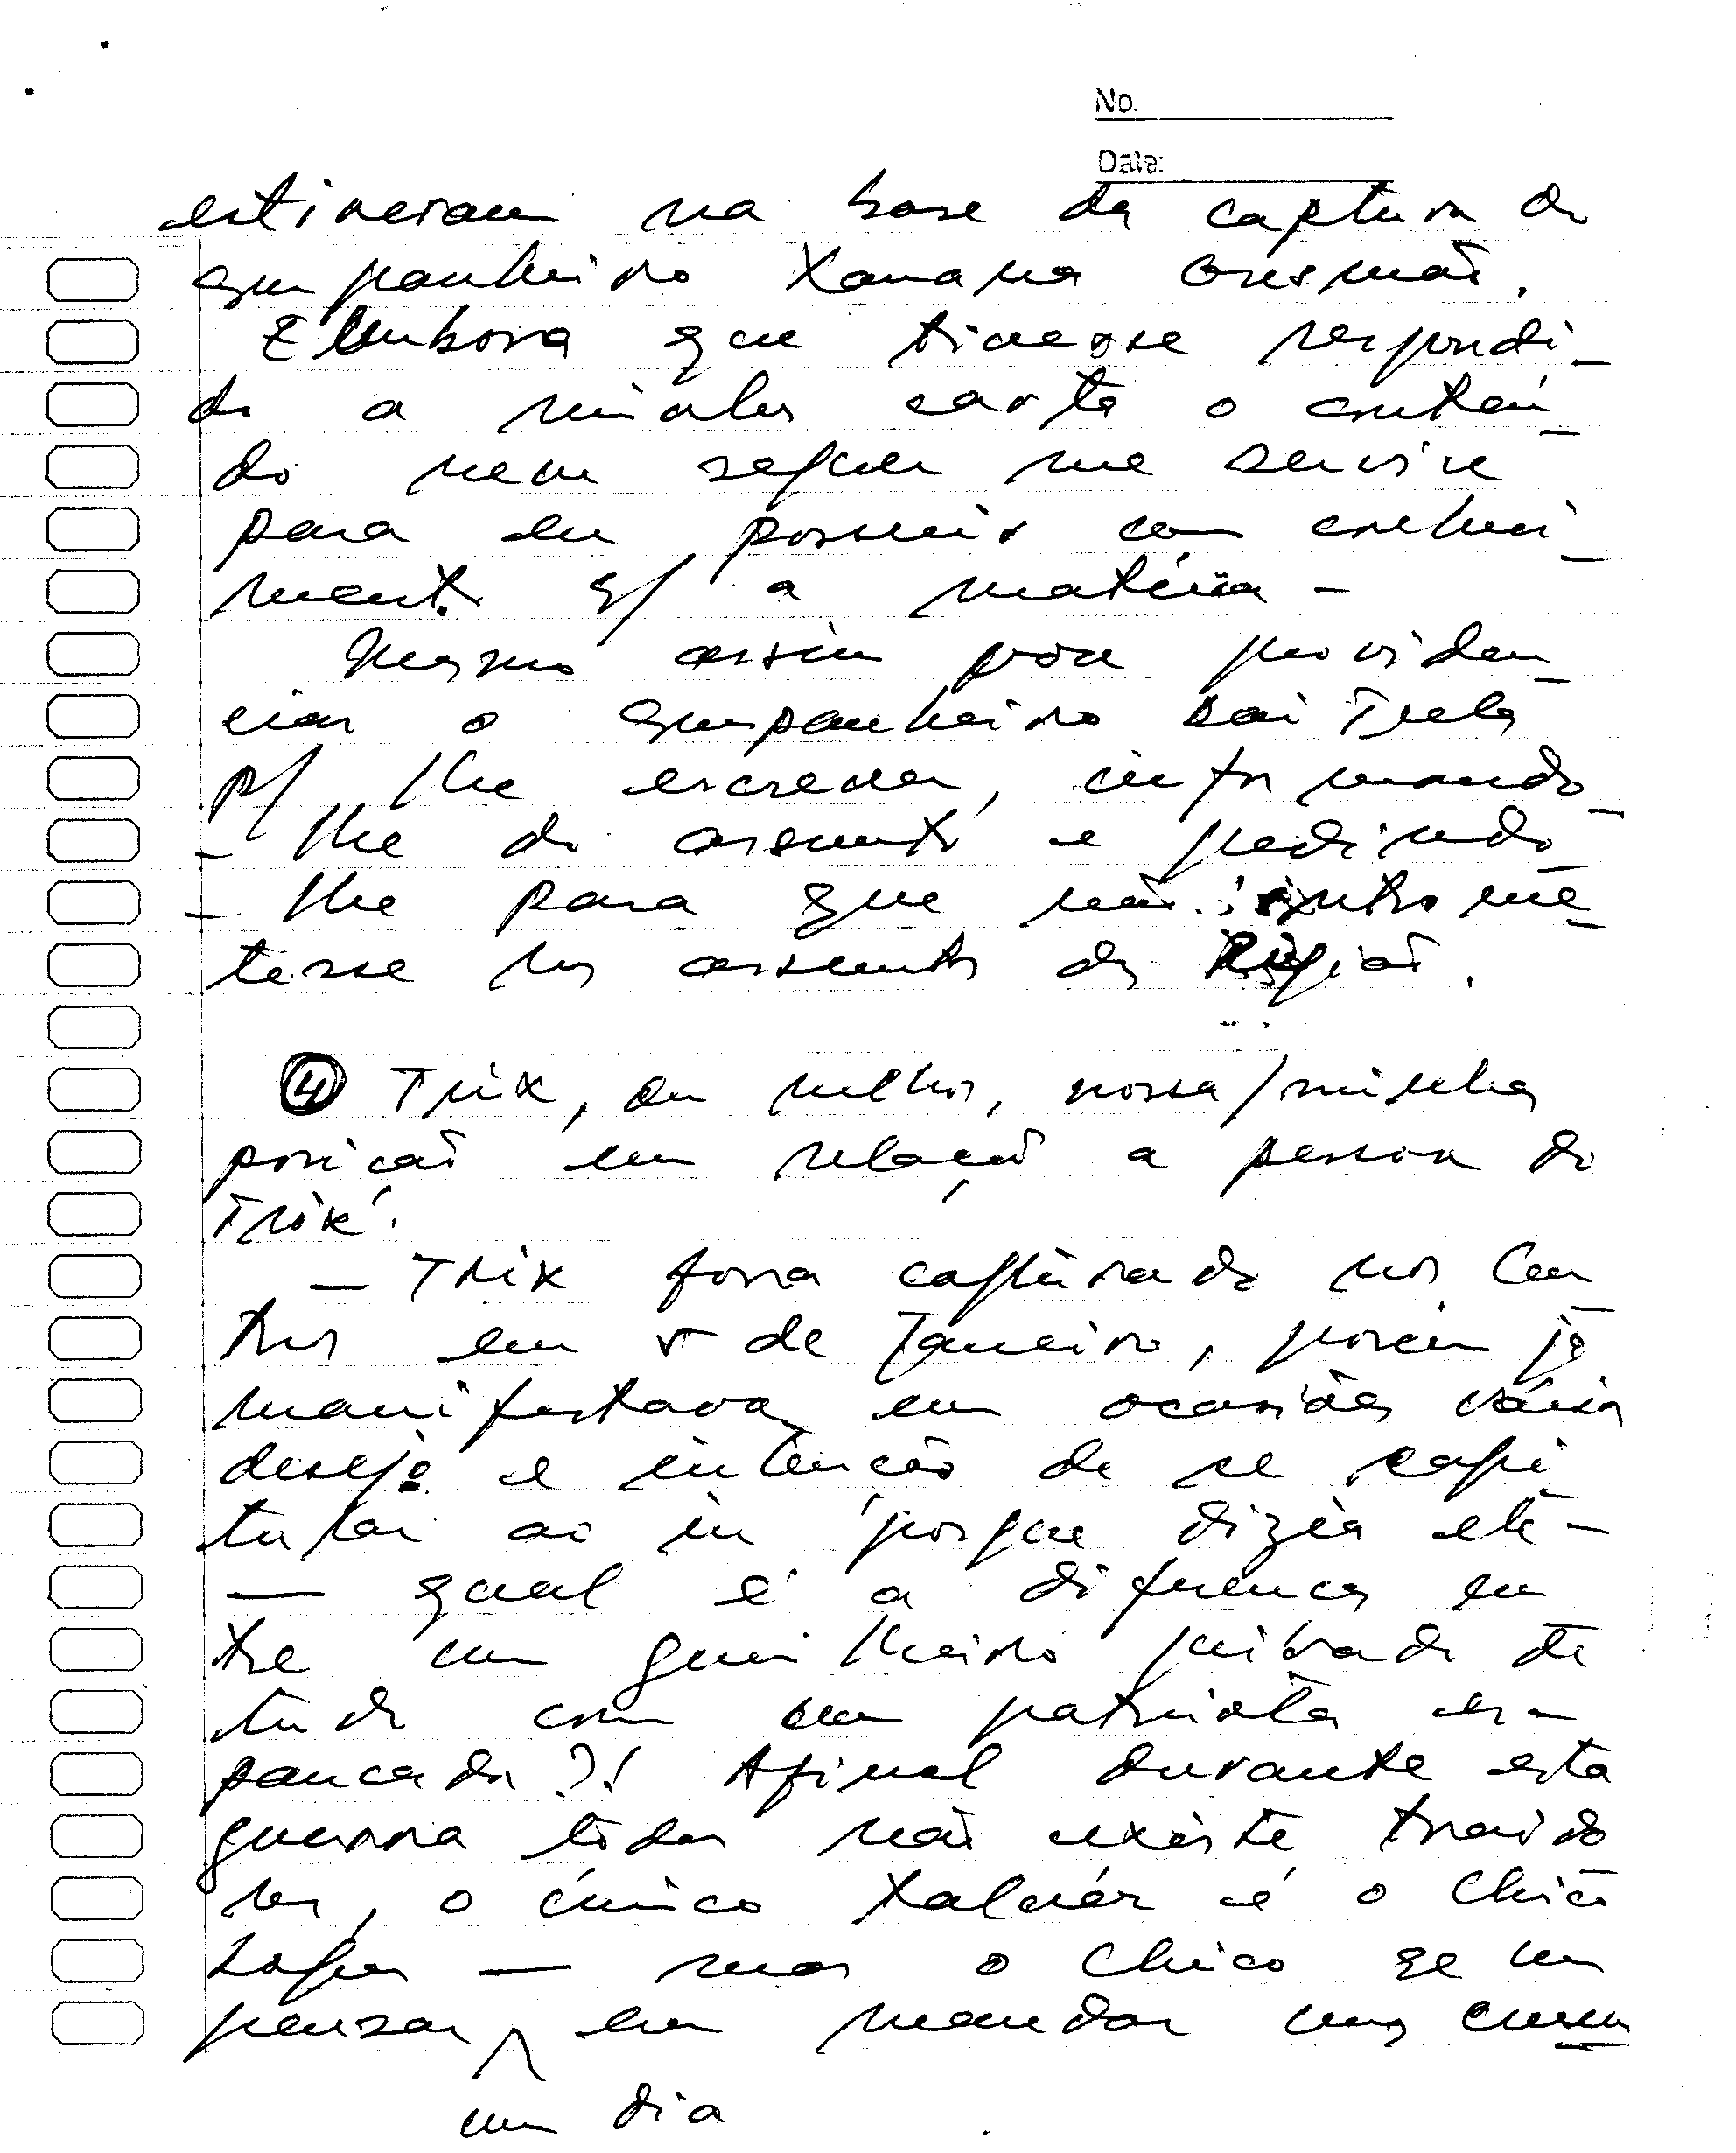 No.
Date:
estiveram na base da captura do
companheiro Xanana Gusmão.
E Embora que tivesse respondi-
do a minha carta o conteú-
do nem sequer me servire
para eu possuir com conheci-
mento s/ a matéria -
Mesmo assim pra providen-
ciar o companheiro Sai Tuela
p/ lhe escrever, informando-
- lhe do assunto e pedindo-
- lhe para que não intromê-
tesse nos assuntos da Região.
4 Trix, ou melhor, nossa/minha
posição em relação a pessoa do
Trix.
- Trix fora capturado nos Cen-
tros em 5 de Janeiro, porém já
manifestava em ocasiões várias
desejo e intenção de se capi-
tular ao in porque dizia ele -
— qual é a diferença en
tre um guerrilheiro privado de
tudo com um patriota es-
pancado?! Afinal durante esta
guerra toda não existe traido
res, o único talvez é o Chico
Lopes — mas o Chico se um
pensar em mandar uns
um dia